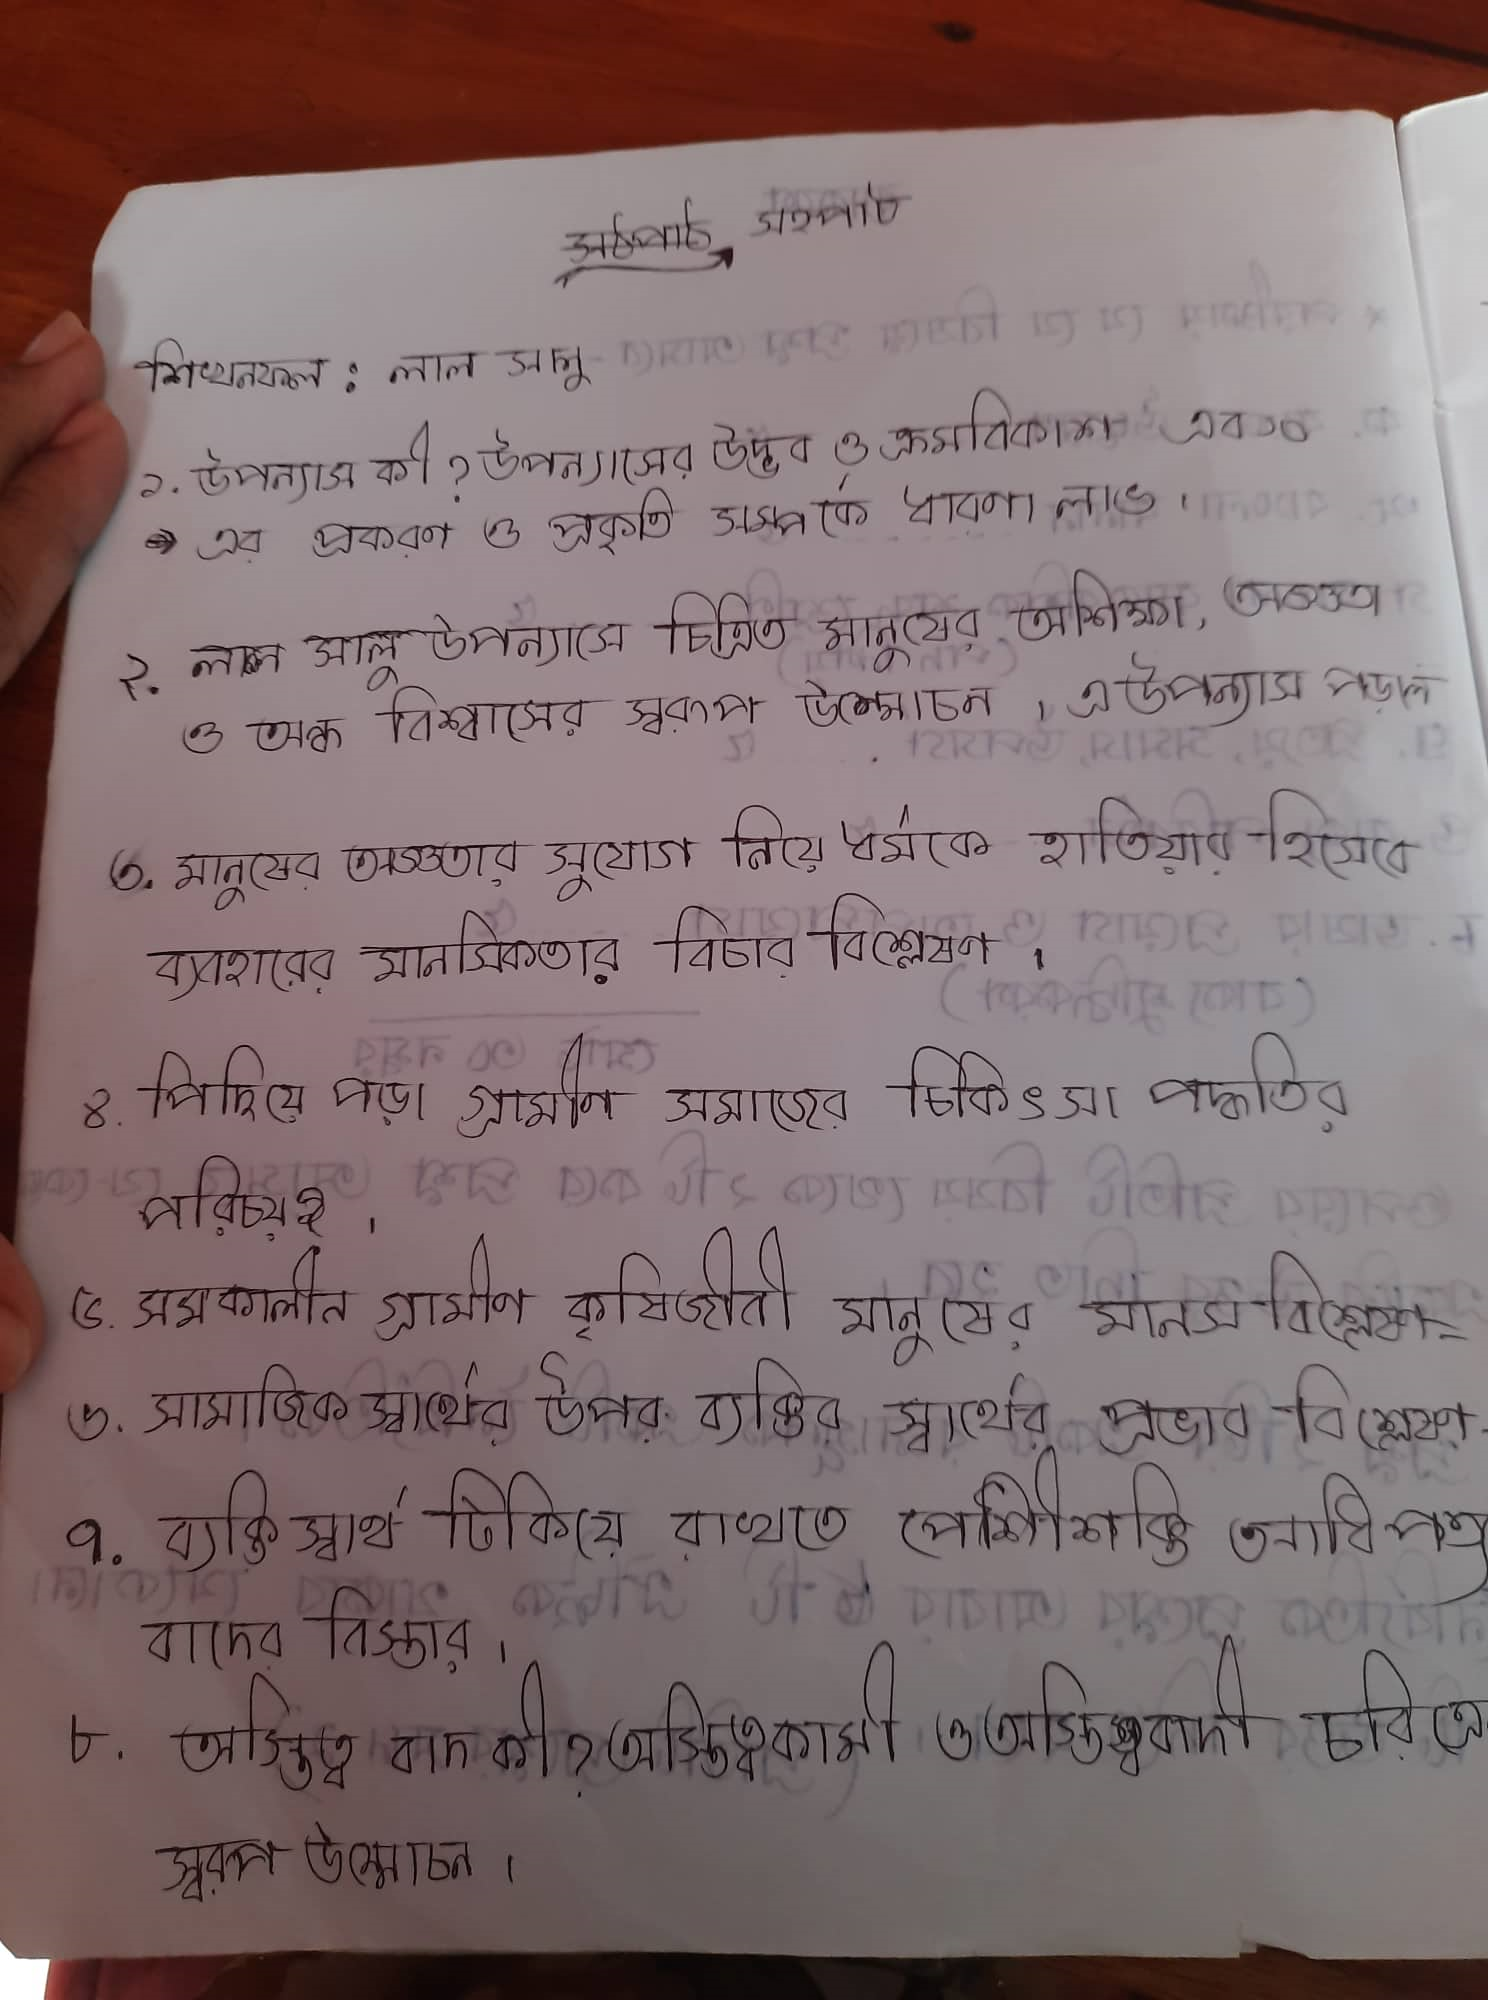 সহপাঠ
শিখনফল : লাল সালু
১. উপন্যাস কী? উপন্যাসের উদ্ভব ও ক্রমবিকাশ এবং
এর প্রকরণ ও প্রকৃতি সম্পর্কে ধারণা লাভ।
২. লাল সালু উপন্যাসে চিত্রিত মানুষের অশিক্ষা, অজ্ঞতা
ও অন্ধ বিশ্বাসের স্বরূপ উন্মোচন। এ উপন্যাস পড়লে
৩. মানুষের অজ্ঞতার সুযোগ নিয়ে ধর্মকে হাতিয়ার হিসেবে
ব্যবহারের মানসিকতার বিচার বিশ্লেষণ।
৪. পিছিয়ে পড়া গ্রামীণ সমাজের চিকিৎসা পদ্ধতির
পরিচয়।
৫. সমকালীন গ্রামীণ কৃষিজীবী মানুষের মানস বিশ্লেষণ
৬. সামাজিক স্বার্থের উপর ব্যক্তির স্বার্থের প্রভাব বিশ্লেষণ
৭. ব্যক্তি স্বার্থ টিকিয়ে রাখতে পেশীশক্তি আধিপত্য
বাদের বিস্তার।
৮. অস্তিত্ব বাদ কী? অস্তিত্বকামী ও অস্তিত্ববাদী চরিত্রে
স্বরূপ উন্মোচন।